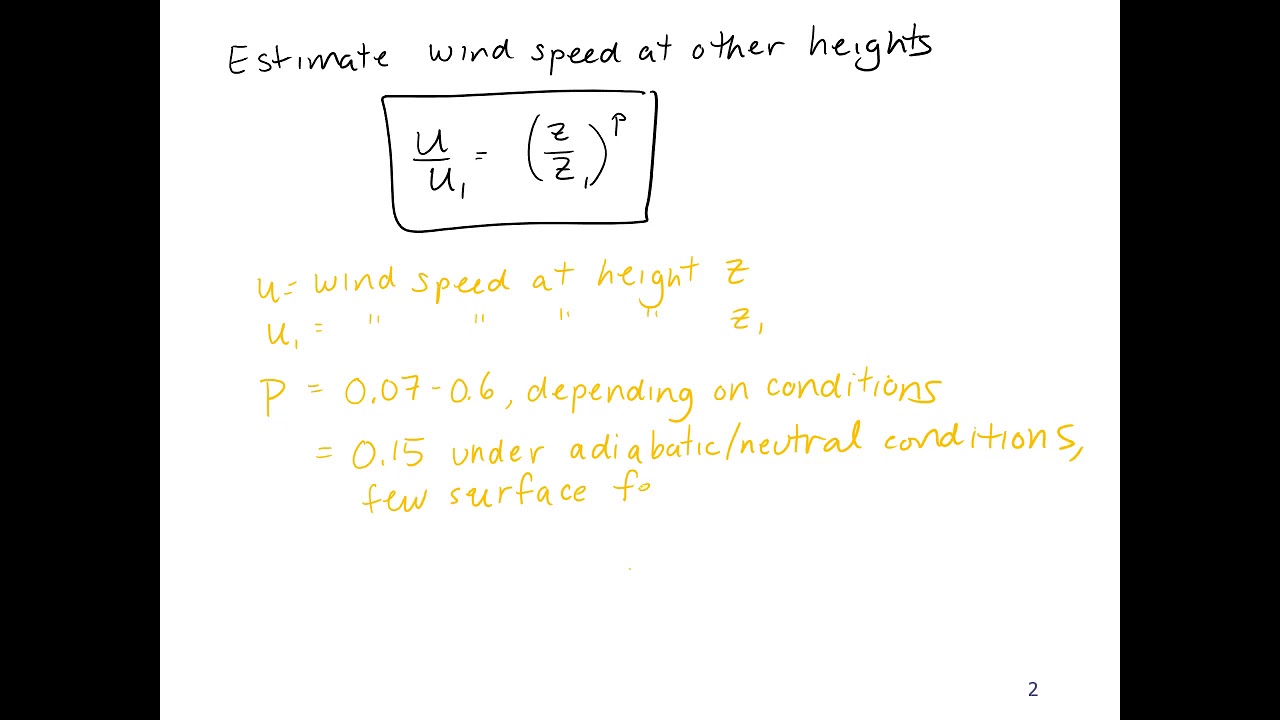 Estimate wind speed at other heights
u/u₁ = (z/z₁)^p
u = wind speed at height z
u₁ = " " " " z₁
P = 0.07-0.6, depending on conditions
= 0.15 under adiabatic/neutral conditions,
few surface fo
2